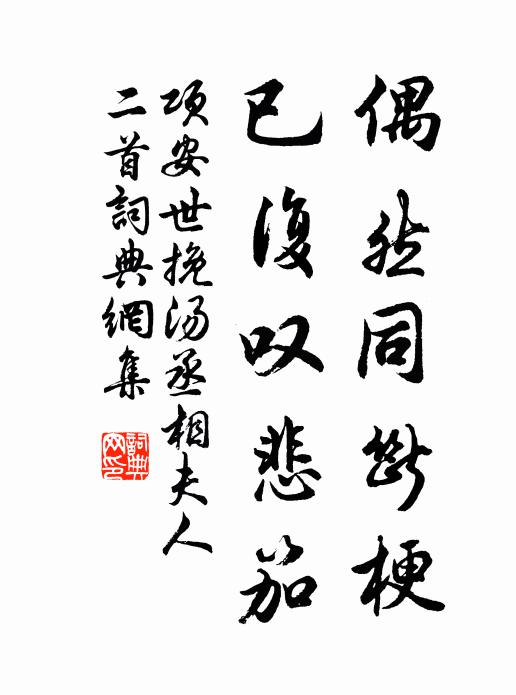 偶然同断梗
已復叹悲笳
项安世挽汤丞相夫人
二首詞典網集
詞典
网印